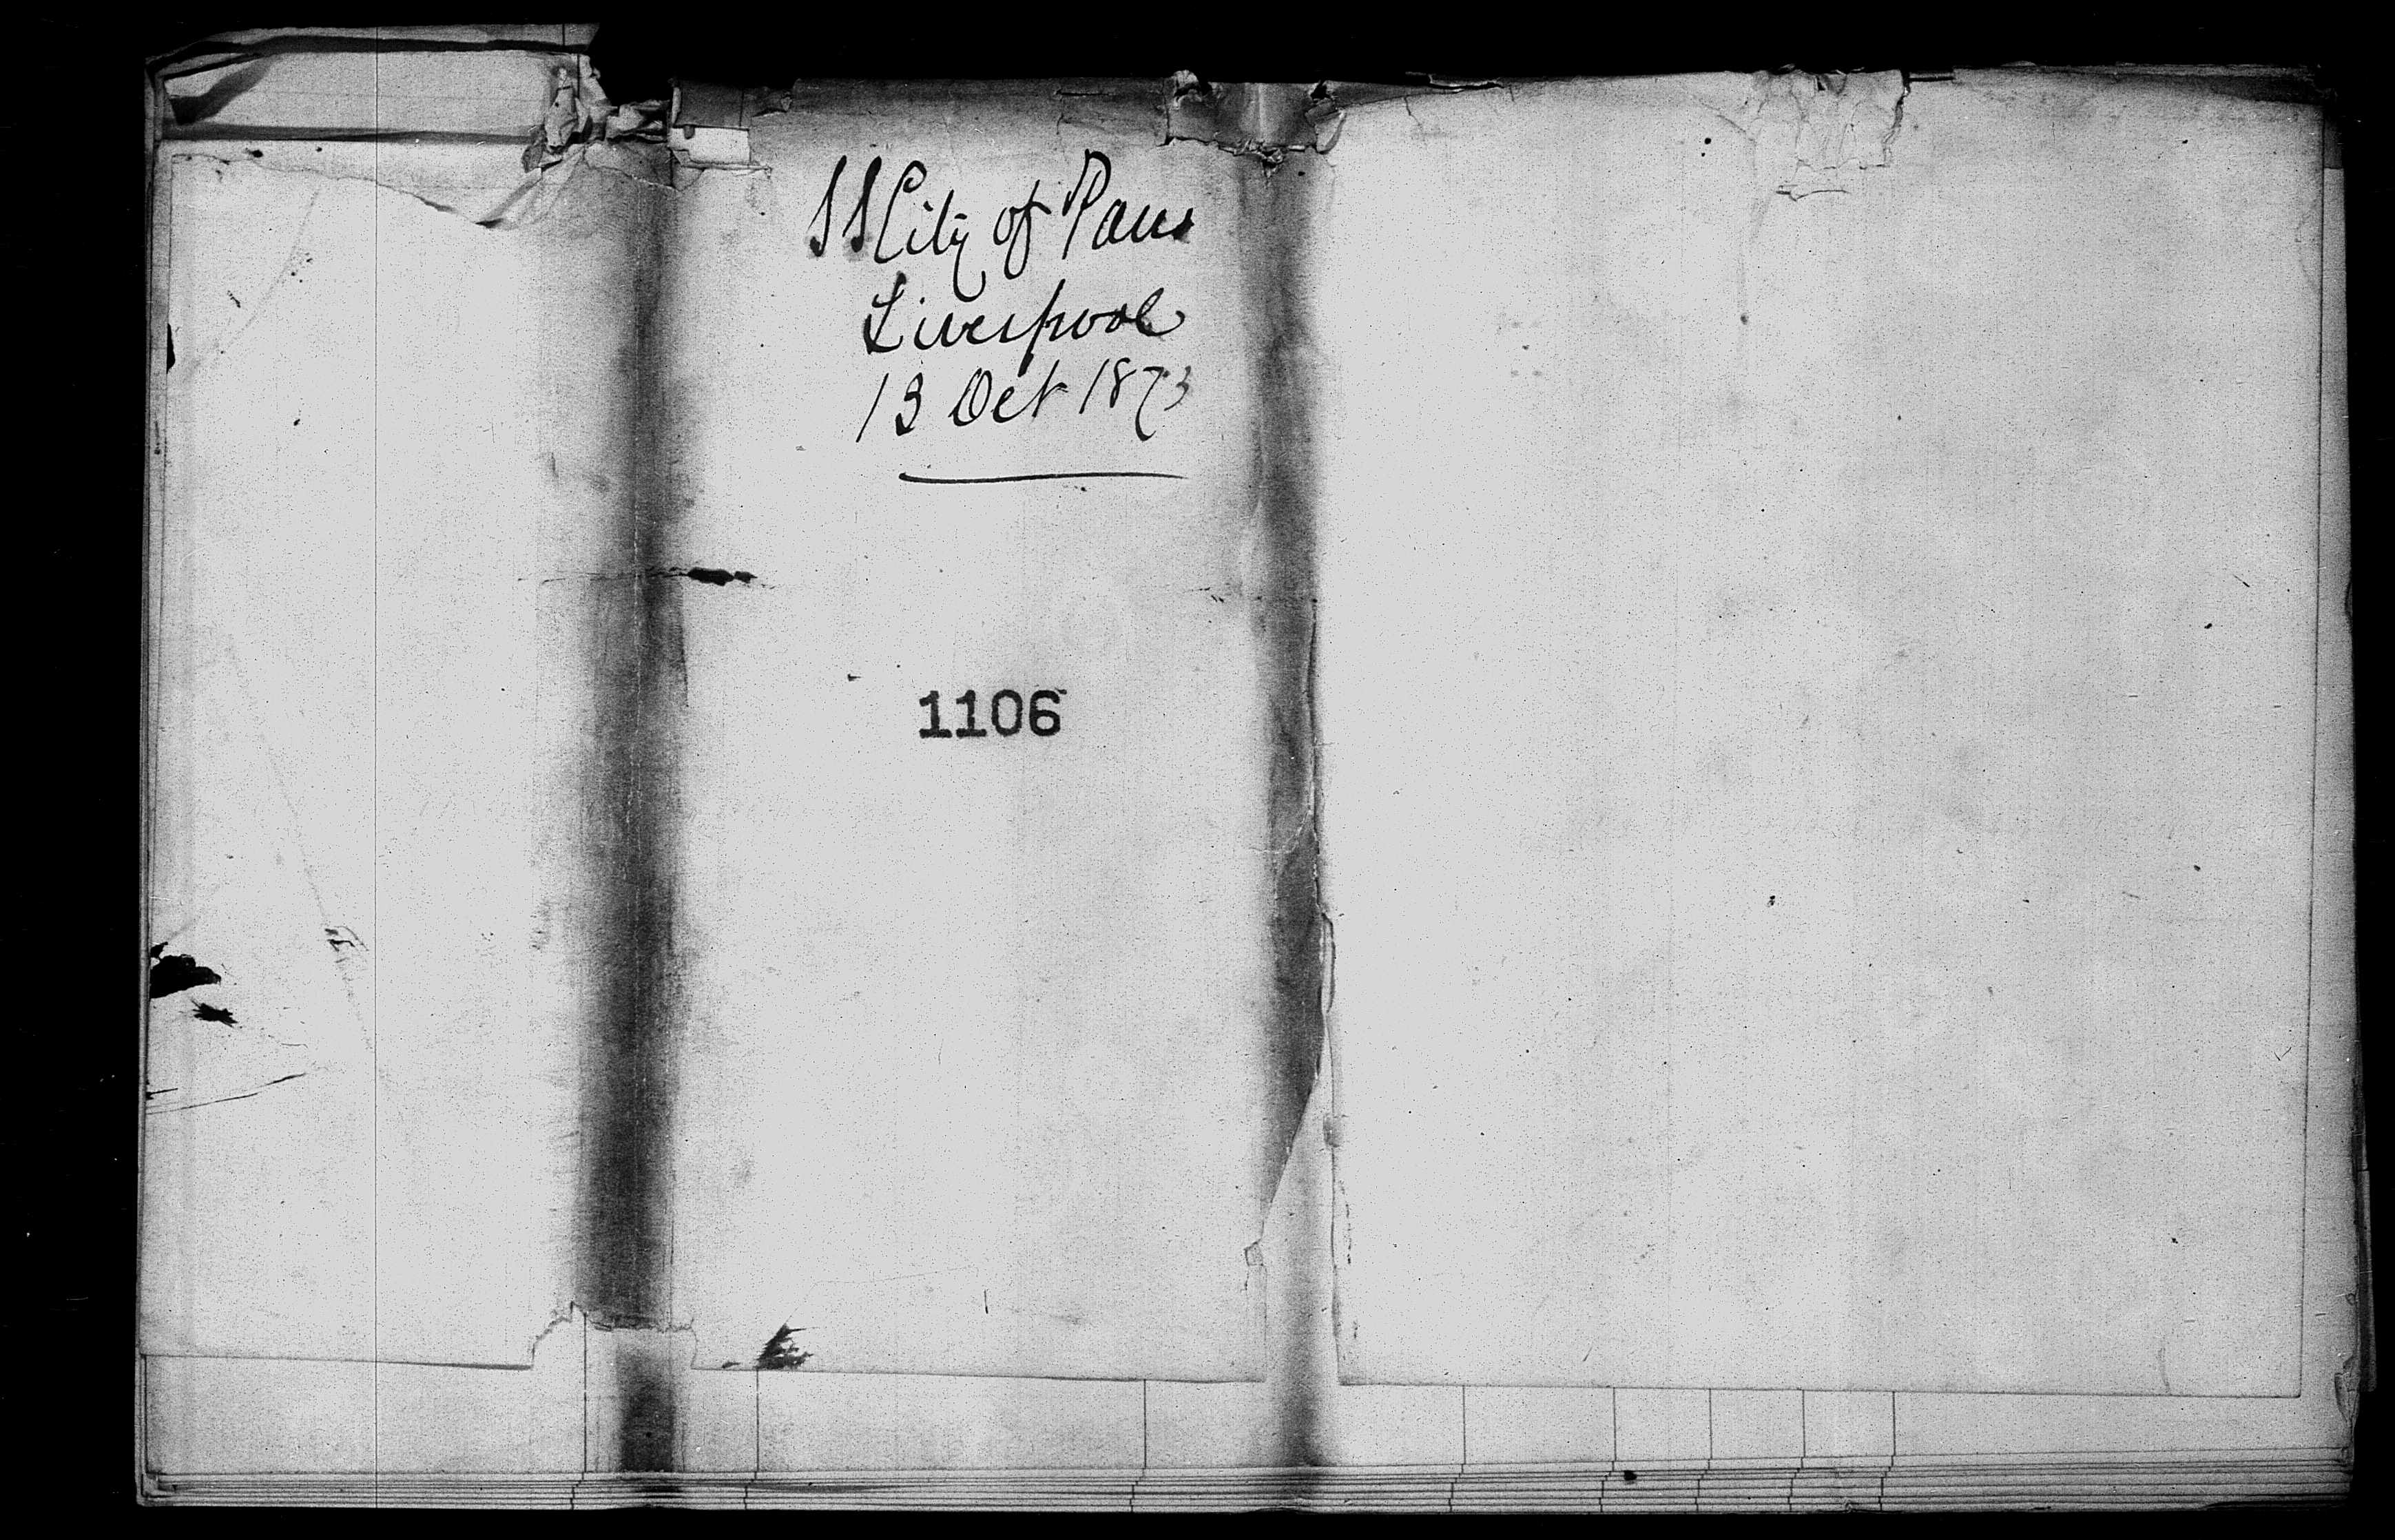 SS City of Paris
Liverpool
13 Oct 1873
1106